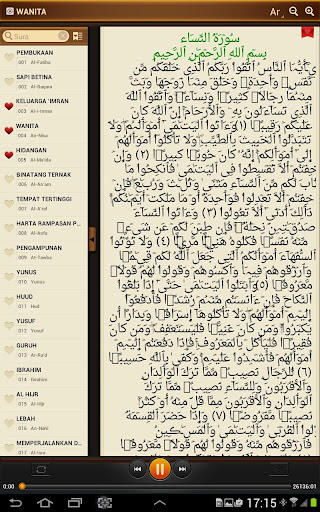 WANITA
Ar
Sura
PEMBUKAAN
001 Al-Fatiha
SAPI BETINA
002 Al-Baqara
KELUARGA 'IMRAN
003 Al-i-Imran
WANITA
004 An-Nisaa
HIDANGAN
005 Al-Maida
BINATANG TERNAK
006 Al-An'am
TEMPAT TERTINGGI
007 Al-A'raf
HARTA RAMPASAN P...
008 Al-Anfal
PENGAMPUNAN
009 At-Tawba
YUNUS
010 Yunus
HUUD
011 Hud
YUSUF
012 Yusuf
GURUH
013 Ar-Ra'd
IBRAHIM
014 Ibrahim
AL HIJR
015 Al-Hijr
LEBAH
016 An-Nahl
MEMPERJALANKAN D...
سُوۡرَةُ النِّسَاء
بِسۡمِ ٱللهِ ٱلرَّحۡمَـٰنِ ٱلرَّحِيمِ
يَـٰٓأَيُّہَا ٱلنَّاسُ ٱتَّقُواْ رَبَّكُمُ ٱلَّذِى خَلَقَكُم مِّن
نَّفۡسٍ وَٲحِدَةٍ وَخَلَقَ مِنۡہَا زَوۡجَهَا وَبَثَّ
مِنۡہُمَا رِجَالاً كَثِيرًا وَنِسَآءً وَٱتَّقُواْ ٱللَّهَ
ٱلَّذِى تَسَآءَلُونَ بِهِۦ وَٱلۡأَرۡحَامَ إِنَّ ٱللَّهَ كَانَ
عَلَيۡكُمۡ رَقِيبًا (١) وَءَاتُواْ ٱلۡيَتَـٰمَىٰٓ أَمۡوَٲلَهُمۡ وَلَا
تَتَبَدَّلُواْ ٱلۡخَبِيثَ بِٱلطَّيِّبِ وَلَا تَأۡكُلُوٓاْ أَمۡوَٲلَهُمۡ
إِلَىٰٓ أَمۡوَٲلِكُمۡ إِنَّهُ ۥ كَانَ حُوبًا كَبِيرًا (٢) وَإِنۡ
خِفۡتُمۡ أَلَّا تُقۡسِطُواْ فِى ٱلۡيَتَـٰمَىٰ فَٱنكِحُواْ مَا
طَابَ لَكُم مِّنَ ٱلنِّسَآءِ مَثۡنَىٰ وَثُلَـٰثَ وَرُبَـٰعَ فَإِنۡ
خِفۡتُمۡ أَلَّا تَعۡدِلُواْ فَوَٲحِدَةً أَوۡ مَا مَلَكَتۡ أَيۡمَـٰنُكُمۡ
ذَٲلِكَ أَدۡنَىٰٓ أَلَّا تَعُولُواْ (٣) وَءَاتُواْ ٱلنِّسَآءَ
صَدُقَـٰتِہِنَّ نِحۡلَةً فَإِن طِبۡنَ لَكُمۡ عَن شَىۡءٍ
مِّنۡهُ نَفۡسًا فَكُلُوهُ هَنِيٓـًٔا مَّرِيٓـًٔا (٤) وَلَا تُؤۡتُواْ
ٱلسُّفَهَآءَ أَمۡوَٲلَكُمُ ٱلَّتِى جَعَلَ ٱللَّهُ لَكُمۡ قِيَـٰمًا
وَٱرۡزُقُوهُمۡ فِيہَا وَٱكۡسُوهُمۡ وَقُولُواْ لَهُمۡ قَوۡلاً
مَّعۡرُوفًا (٥) وَٱبۡتَلُواْ ٱلۡيَتَـٰمَىٰ حَتَّىٰٓ إِذَا بَلَغُواْ
ٱلنِّكَاحَ فَإِنۡ ءَانَسۡتُم مِّنۡہُمۡ رُشۡدًا فَٱدۡفَعُوٓاْ إِلَيۡہِمۡ
أَمۡوَٲلَهُمۡ وَلَا تَأۡكُلُوهَآ إِسۡرَافًا وَبِدَارًا أَن
يَكۡبَرُواْ وَمَن كَانَ غَنِيًّا فَلۡيَسۡتَعۡفِفۡ وَمَن كَانَ
فَقِيرًا فَلۡيَأۡكُلۡ بِٱلۡمَعۡرُوفِ فَإِذَا دَفَعۡتُمۡ إِلَيۡہِمۡ
أَمۡوَٲلَهُمۡ فَأَشۡہِدُواْ عَلَيۡہِمۡ وَكَفَىٰ بِٱللَّهِ حَسِيبًا
(٦) لِّلرِّجَالِ نَصِيبٌ مِّمَّا تَرَكَ ٱلۡوَٲلِدَانِ
وَٱلۡأَقۡرَبُونَ وَلِلنِّسَآءِ نَصِيبٌ مِّمَّا تَرَكَ
ٱلۡوَٲلِدَانِ وَٱلۡأَقۡرَبُونَ مِمَّا قَلَّ مِنۡهُ أَوۡ كَثُرَ
نَصِيبًا مَّفۡرُوضًا (٧) وَإِذَا حَضَرَ ٱلۡقِسۡمَةَ
أُوْلُواْ ٱلۡقُرۡبَىٰ وَٱلۡيَتَـٰمَىٰ وَٱلۡمَسَـٰڪِينُ
فَٱرۡزُقُوهُم مِّنۡهُ وَقُولُواْ لَهُمۡ قَوۡلاً مَّعۡرُوفًا
0:00
26136:01
17:15